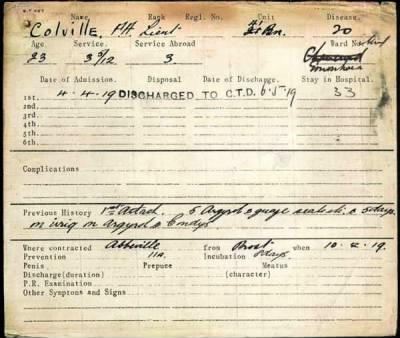 Name Rank Regl. No. Unit Disease.
Colville, Lieut 20
Age Service. Service Abroad Ward No.
23 3 5/12 3
Date of Admission. Disposal Date of Discharge. Stay in Hospital.
1st 4-4-19 DISCHARGED TO C.T.D. 6-5-19 33
2nd
3rd
4th
5th
6th
Complications
Previous History 1st Attack. 5 Argyrol & 5 days
on irrig on Argyrol & Condys
Where contracted Abbeville from when 10-2-19.
Prevention Incubation days.
Penis Prepuce Meatus
Discharge(duration) (character)
P.R. Examination
Other Symptoms and Signs